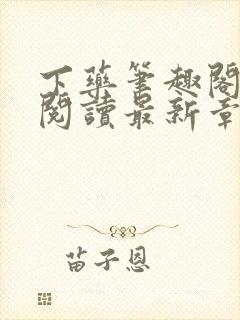 下藥筆趣閣
閱讀最新章
苗子恩